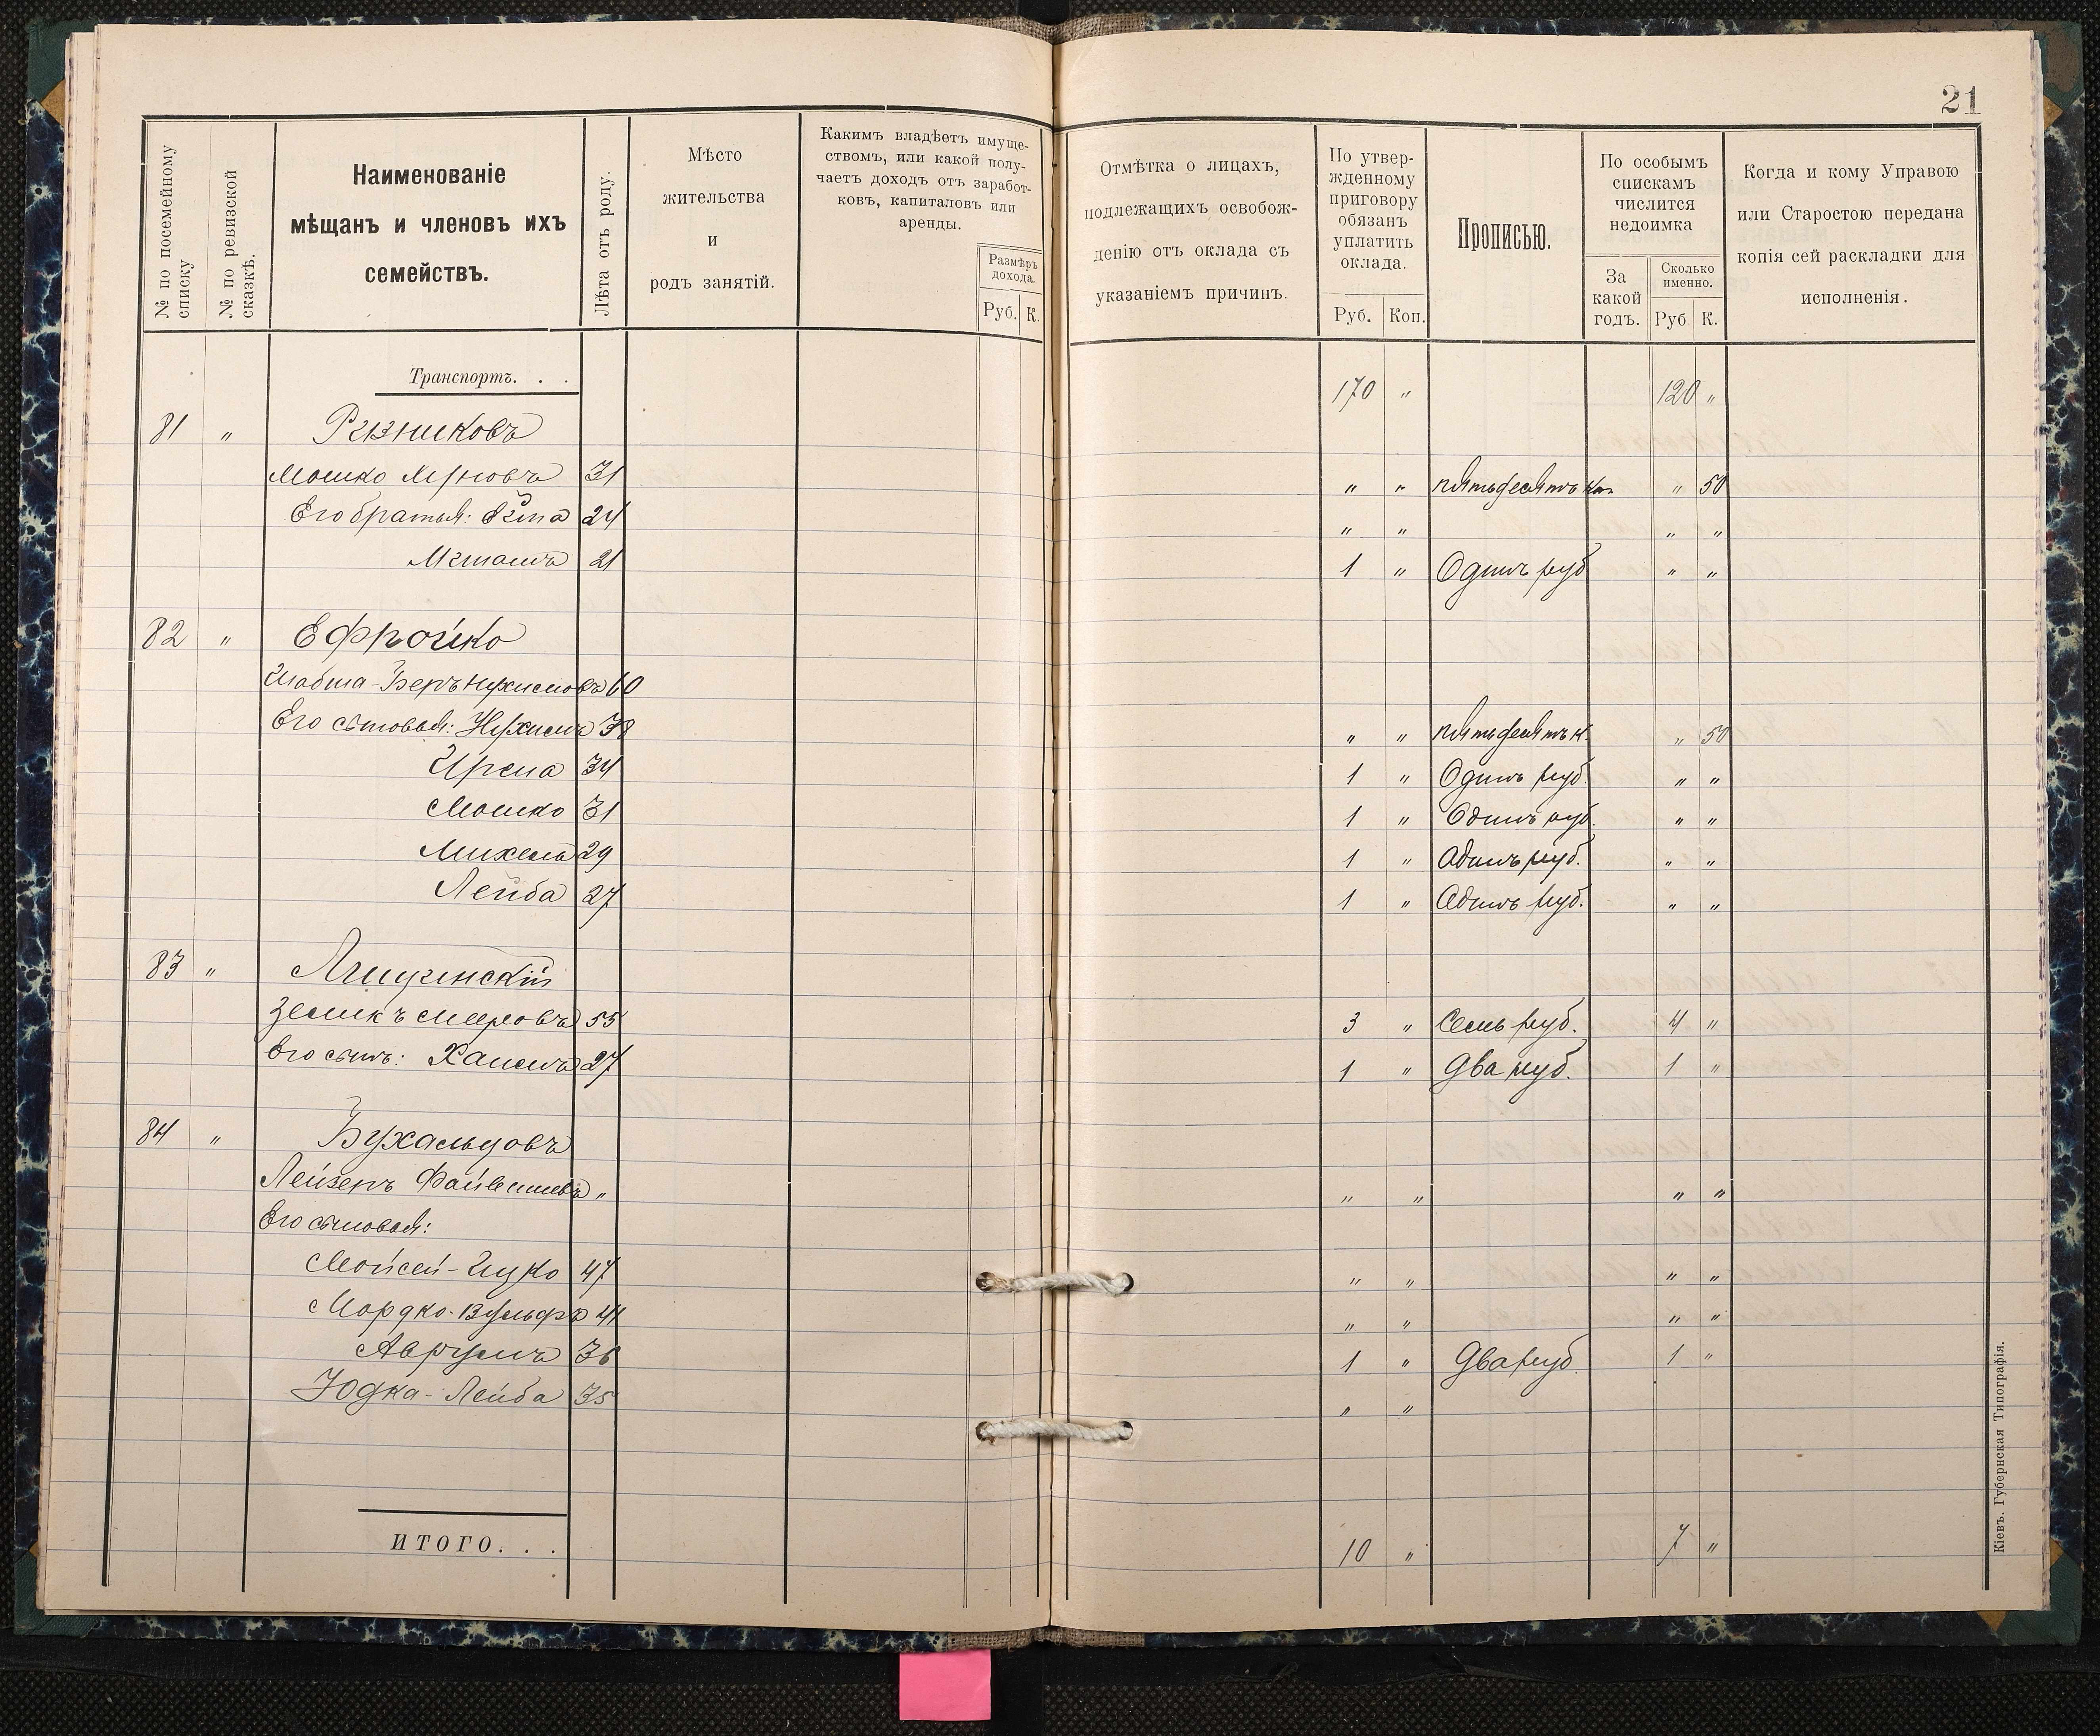 21
№ по посемейному списку
№ по ревизской сказкѣ.
Наименованіе
мѣщанъ и членовъ ихъ
семействъ.
Лѣта отъ роду.
Мѣсто
жительства
и
родъ занятій.
Какимъ владѣетъ имуще-
ствомъ, или какой полу-
чаетъ доходъ отъ заработ-
ковъ, капиталовъ или
аренды.
Размѣръ
дохода.
Руб. К.
Отмѣтка о лицахъ,
подлежащихъ освобож-
денію отъ оклада съ
указаніемъ причинъ.
По утвер-
жденному
приговору
обязанъ
уплатить
оклада.
Руб. Коп.
Прописью.
По особымъ
спискамъ
числится
недоимка
За
какой
годъ.
Сколько
именно.
Руб К.
Когда и кому Управою
или Старостою передана
копія сей раскладки для
исполненія.
Транспортъ. . . 170 „ 120 „
81 „ Рѣзниковъ
Мошко 31 „ „ пятьдесятъ коп „ 50
Его братья: 24 „ „ „ „
21 1 „ Одинъ руб „ „
82 „ Ефройко
Шабша-Беръ Нухимовъ 60
Его сыновья: Нухимъ 38 „ „ пятьдесятъ к. „ 50
Ирма 34 1 „ Одинъ руб. „ „
Мошко 31 1 „ Одинъ руб. „ „
Михель 29 1 „ Одинъ руб. „ „
Лейба 27 1 „ Одинъ руб. „ „
83 „ Лещинскій
Зеликъ Мееровъ 55 3 „ Семь руб. 4 „
Его сынъ: Хаимъ 27 1 „ Два руб. 1 „
84 „ Бухальцовъ
Лейзеръ Файвишевъ „ „ „ „ „
Его сыновья:
Мойсей-Ицко 47 „ „ „ „
Мордко-Вульфъ 41 „ „ „ „
Аврумъ 36 1 „ Два руб. 1 „
Юдка-Лейба 35 „ „
ИТОГО. . . 10 „ 7 „
Кіевъ. Губернская Типографія.